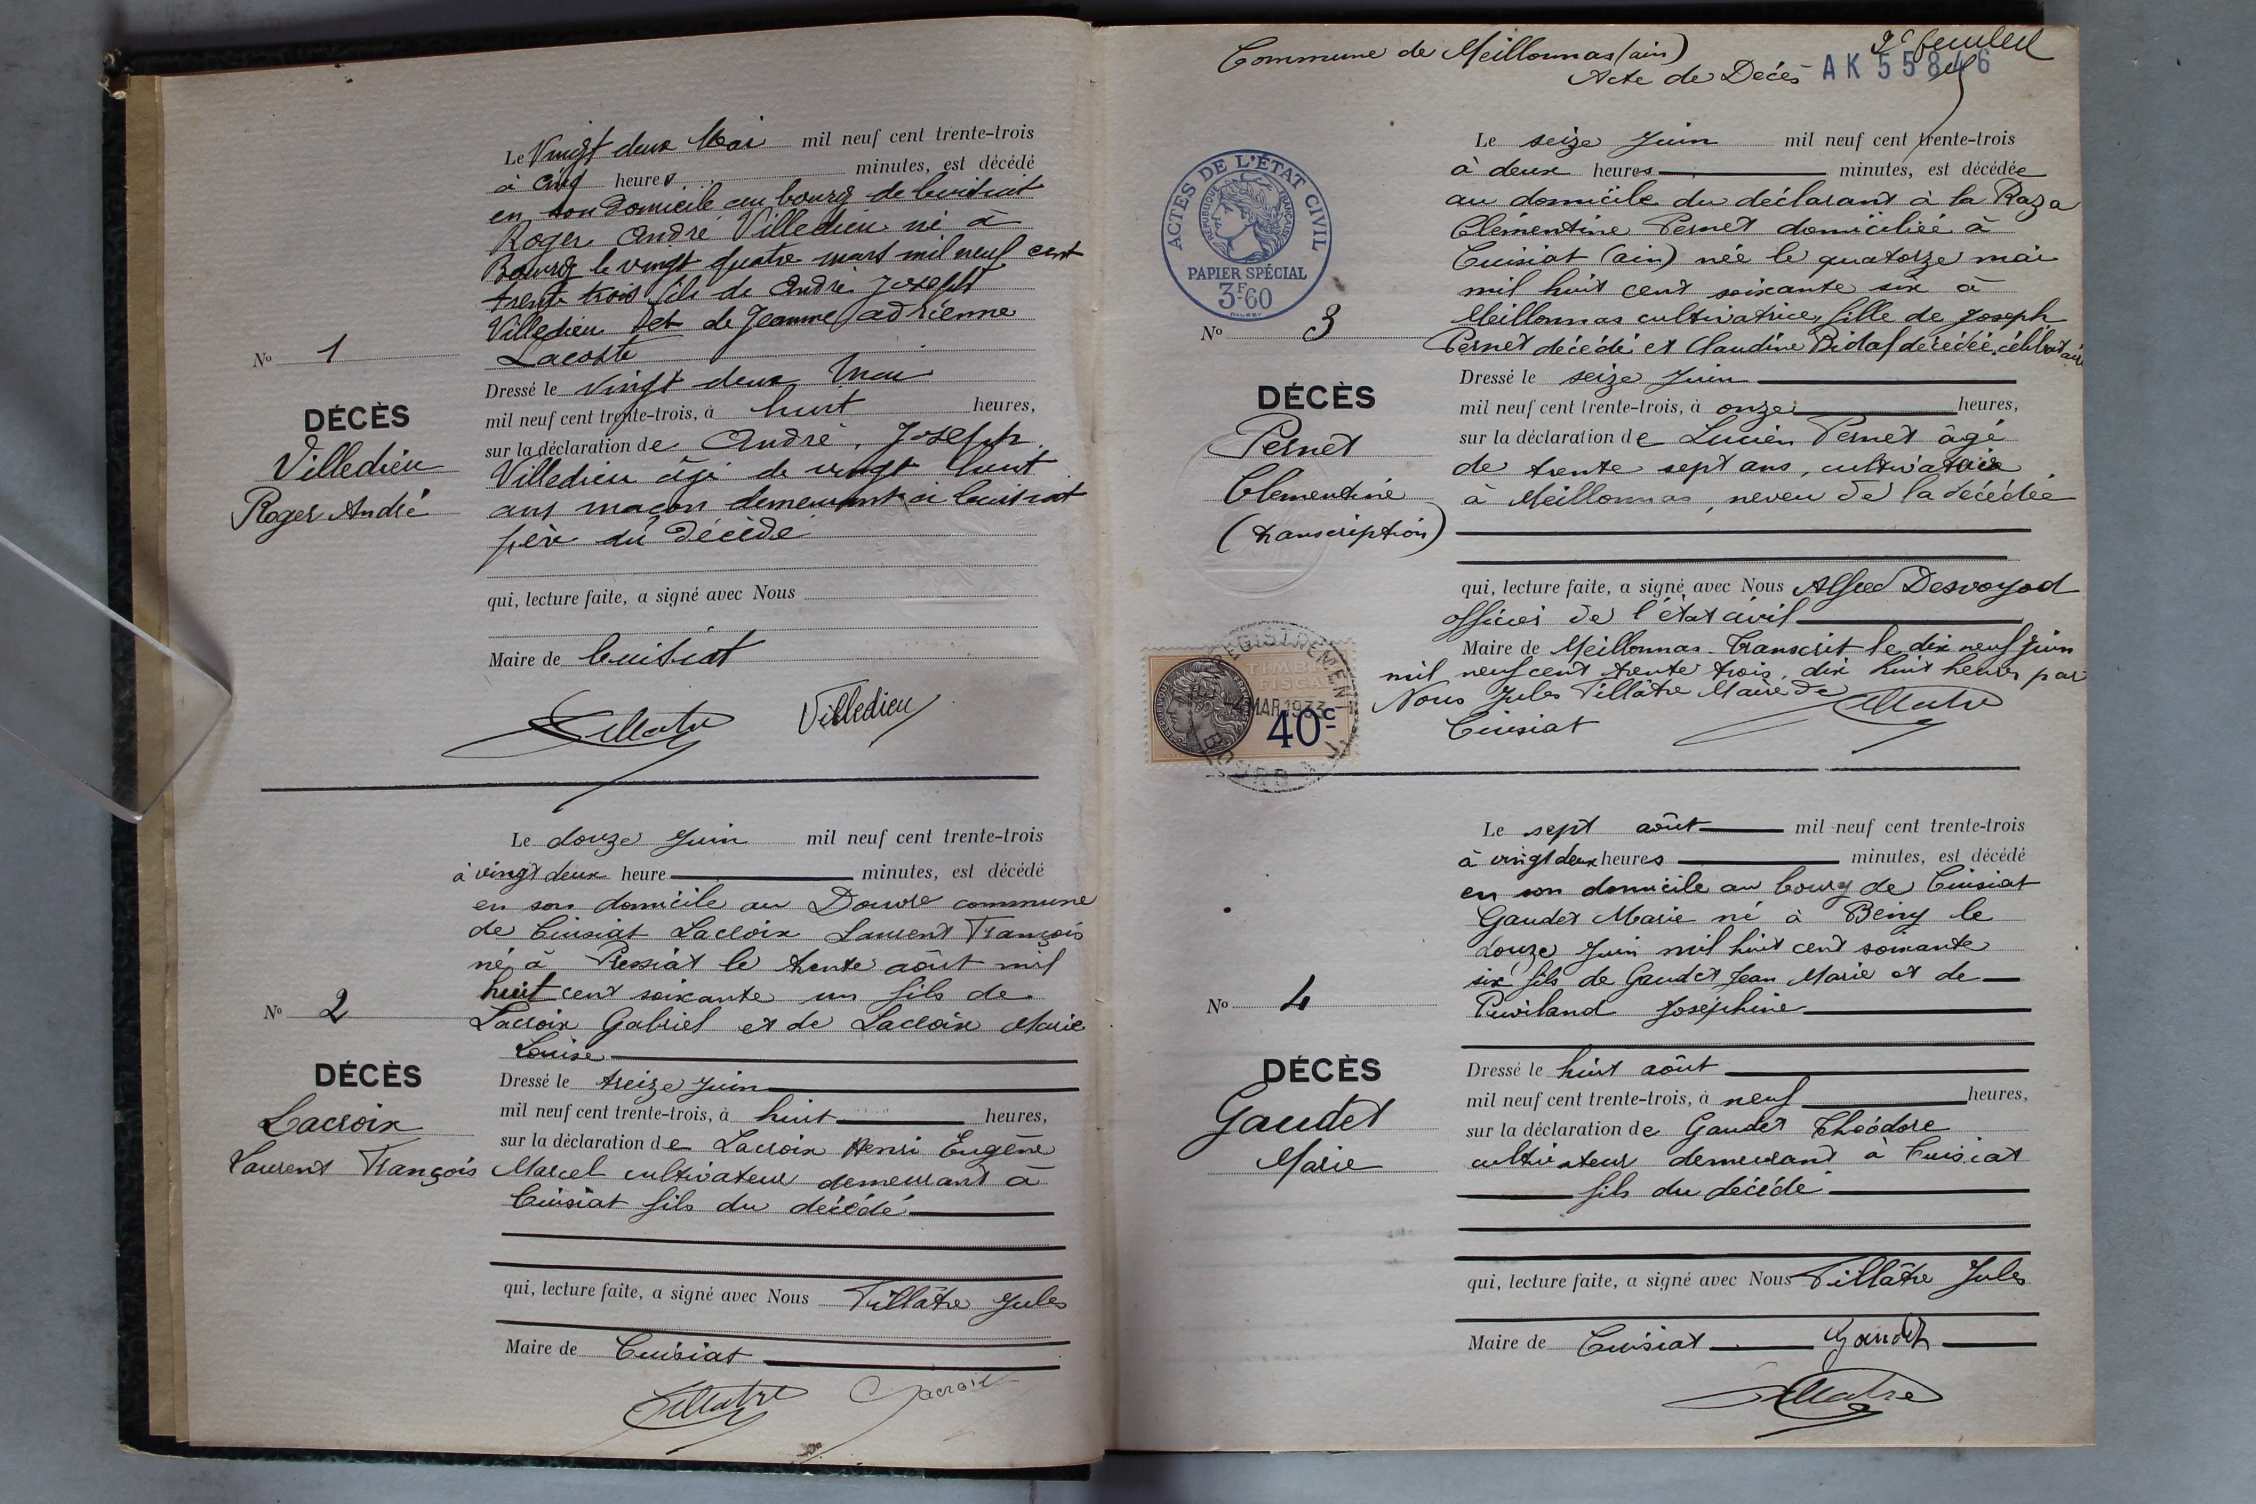 Le Vingt deux Mai mil neuf cent trente-trois
à cinq heures minutes, est décédé
en son domicile au bourg de Cuisiat
Roger André Villedieu né à
Bourg le vingt quatre mars mil neuf cent
trente trois fils de André Joseph
Villedieu et de Jeanne adrienne
Lacoste
No 1
DÉCÈS
Villedieu
Roger André
Dressé le vingt deux Mai
mil neuf cent trente-trois, à huit heures,
sur la déclaration de André, Joseph
Villedieu âgé de vingt huit
ans maçon demeurant à Cuisiat
père du décédé
qui, lecture faite, a signé avec Nous
Maire de Cuisiat
Villedieu
Le douze Juin mil neuf cent trente-trois
à vingt deux heure minutes, est décédé
en son domicile au Douvre commune
de Cuisiat Lacroix Laurent François
né à Pressiat le trente août mil
huit cent soixante un fils de
Lacroix Gabriel et de Lacroix Marie
Louise
No 2
DÉCÈS
Lacroix
Laurent François
Dressé le treize Juin
mil neuf cent trente-trois, à huit heures,
sur la déclaration de Lacroix Henri Eugène
Marcel cultivateur demeurant à
Cuisiat fils du décédé
qui, lecture faite, a signé avec Nous Tillâtre Jules
Maire de Cuisiat
Tillatre Lacroix
Commune de Meillonnas (ain)
2e feuillet
Acte de Décès AK 55846
ACTES DE L'ÉTAT CIVIL
RÉPUBLIQUE FRANÇAISE
PAPIER SPÉCIAL
3F60
Le seize Juin mil neuf cent trente-trois
à deux heures minutes, est décédée
au domicile du déclarant à la Raza
Clémentine Pernet domiciliée à
Cuisiat (ain) née le quatorze mai
mil huit cent soixante six à
Meillonnas cultivatrice, fille de Joseph
Pernet décédé et Claudine Didaf décédée, célibataire
No 3
DÉCÈS
Pernet
Clementine
(transcription)
Dressé le seize Juin
mil neuf cent trente-trois, à onze heures,
sur la déclaration de Lucien Pernet âgé
de trente sept ans, cultivateur
à Meillonnas, neveu de la décédée
qui, lecture faite, a signé avec Nous Alfred Desvoyod
officier de l'état civil
Maire de Meillonnas. Transcrit le dix neuf Juin
mil neuf cent trente trois, dix huit heures par
Nous Jules Tillâtre Maire de
Cuisiat Tillatre
ENREGISTREMENT
TIMBRE
FISCAL
MAR 1933
40c
BOURG
Le sept août mil neuf cent trente-trois
à vingt deux heures minutes, est décédé
en son domicile au bourg de Cuisiat
Gaudet Marie né à Bény le
douze Juin mil huit cent soixante
six fils de Gaudet Jean Marie et de
Puvilland Joséphine
No 4
DÉCÈS
Gaudet
Marie
Dressé le huit août
mil neuf cent trente-trois, à neuf heures,
sur la déclaration de Gaudet Théodore
cultivateur demeurant à Cuisiat
fils du décédé
qui, lecture faite, a signé avec Nous Tillâtre Jules
Maire de Cuisiat Gaudet
Tillatre